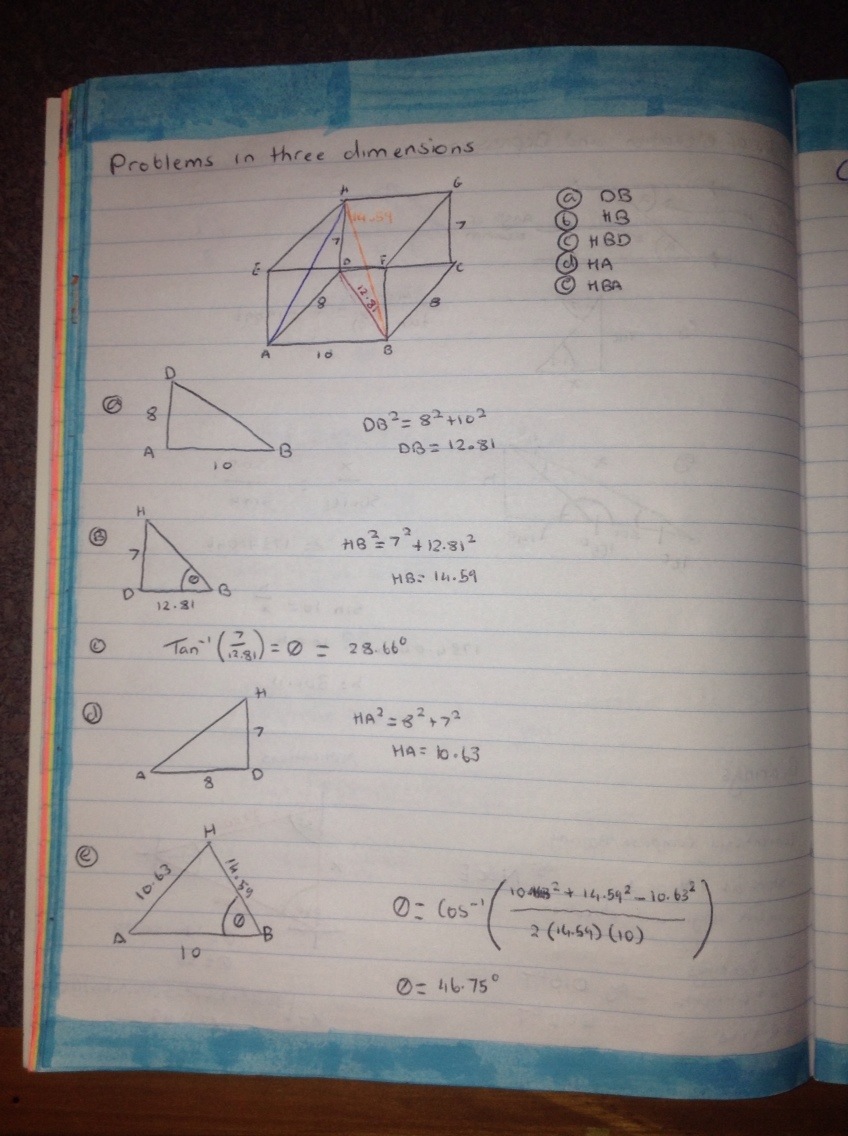 Problems in three dimensions
H G
14.59
7 7
E D F C
8 12.81 8
A 10 B
ⓐ DB
ⓑ HB
ⓒ HBD
ⓓ HA
ⓔ HBA
ⓐ D
8
A 10 B
DB² = 8² + 10²
DB = 12.81
Ⓑ H
7
D θ B
12.81
HB² = 7² + 12.81²
HB = 14.59
ⓒ Tan⁻¹ (7/12.81) = θ = 28.66°
ⓓ H
7
A 8 D
HA² = 8² + 7²
HA = 10.63
ⓔ H
10.63 14.59
A θ B
10
θ = Cos⁻¹ (10² + 14.59² − 10.63² / 2(14.59)(10))
θ = 46.75°